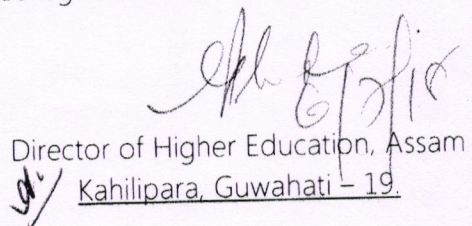 Director of Higher Education, Assam
Kahilipara, Guwahati – 19.